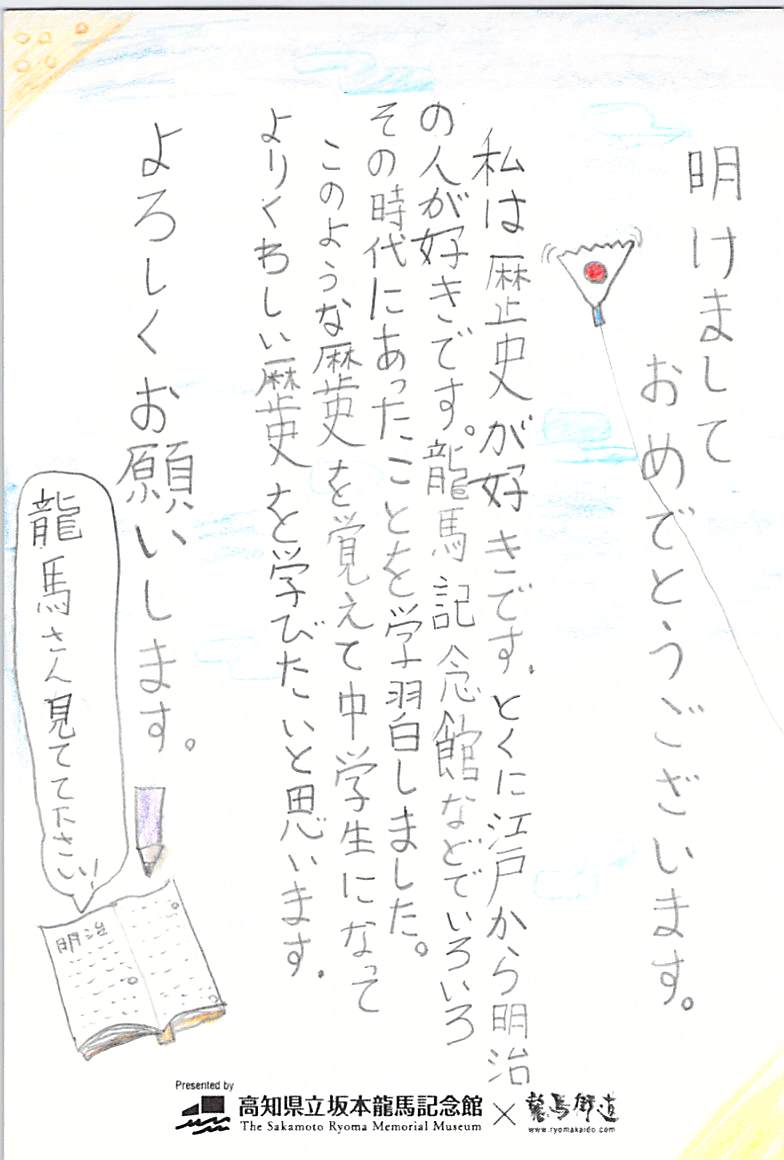 明けまして
おめでとうございます。
私は歴史が好きです。とくに江戸から明治
の人が好きです。龍馬記念館などでいろいろ
その時代にあったことを学習しました。
このような歴史を覚えて中学生になって
よりくわしい歴史を学びたいと思います。
よろしくお願いします。
龍馬さん見てて下さい!
明治
Presented by
高知県立坂本龍馬記念館
The Sakamoto Ryoma Memorial Museum
×
龍馬街道
www.ryomakaido.com